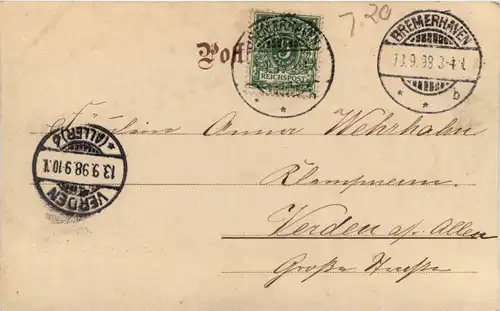 7.20
BREMERHAVEN
13.9.98 3-4 N.
* * b
Postk
5
REICHSPOST
Fräulein Anna Wehrhahn
Verden a/. Aller
Große Straße
VERDEN
13.9.98.9-10.N.
* (ALLER) *